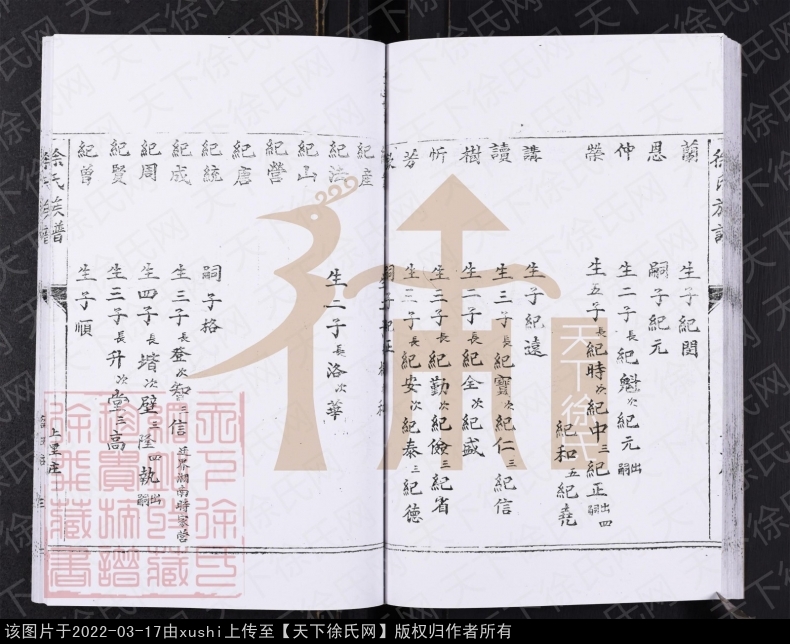 徐氏族譜
蘭 生子紀閔
恩 嗣子紀元
仲 生二子長紀魁次紀元出嗣
榮 生五子長紀時次紀中三紀正出嗣四紀和五紀堯
講 生子紀遠
讀 生三子長紀寶次紀仁三紀信
樹 生二子長紀全次紀盛
忻 生三子長紀勤次紀儉三紀省
芳 生三子長紀安次紀泰三紀德
嗣子紀
紀產
紀法 生二子長洛次華
紀山
紀營
紀唐
紀統 嗣子格
紀成 生三子長登次智三信遷居湖南時家營
紀周 生四子長增次壁三隆四執出嗣
紀賢 生三子長升次堂三高
紀曾 生子順
徐氏族譜
上里庄
天下徐氏
天下徐氏网
该图片于2022-03-17由xushi上传至【天下徐氏网】版权归作者所有